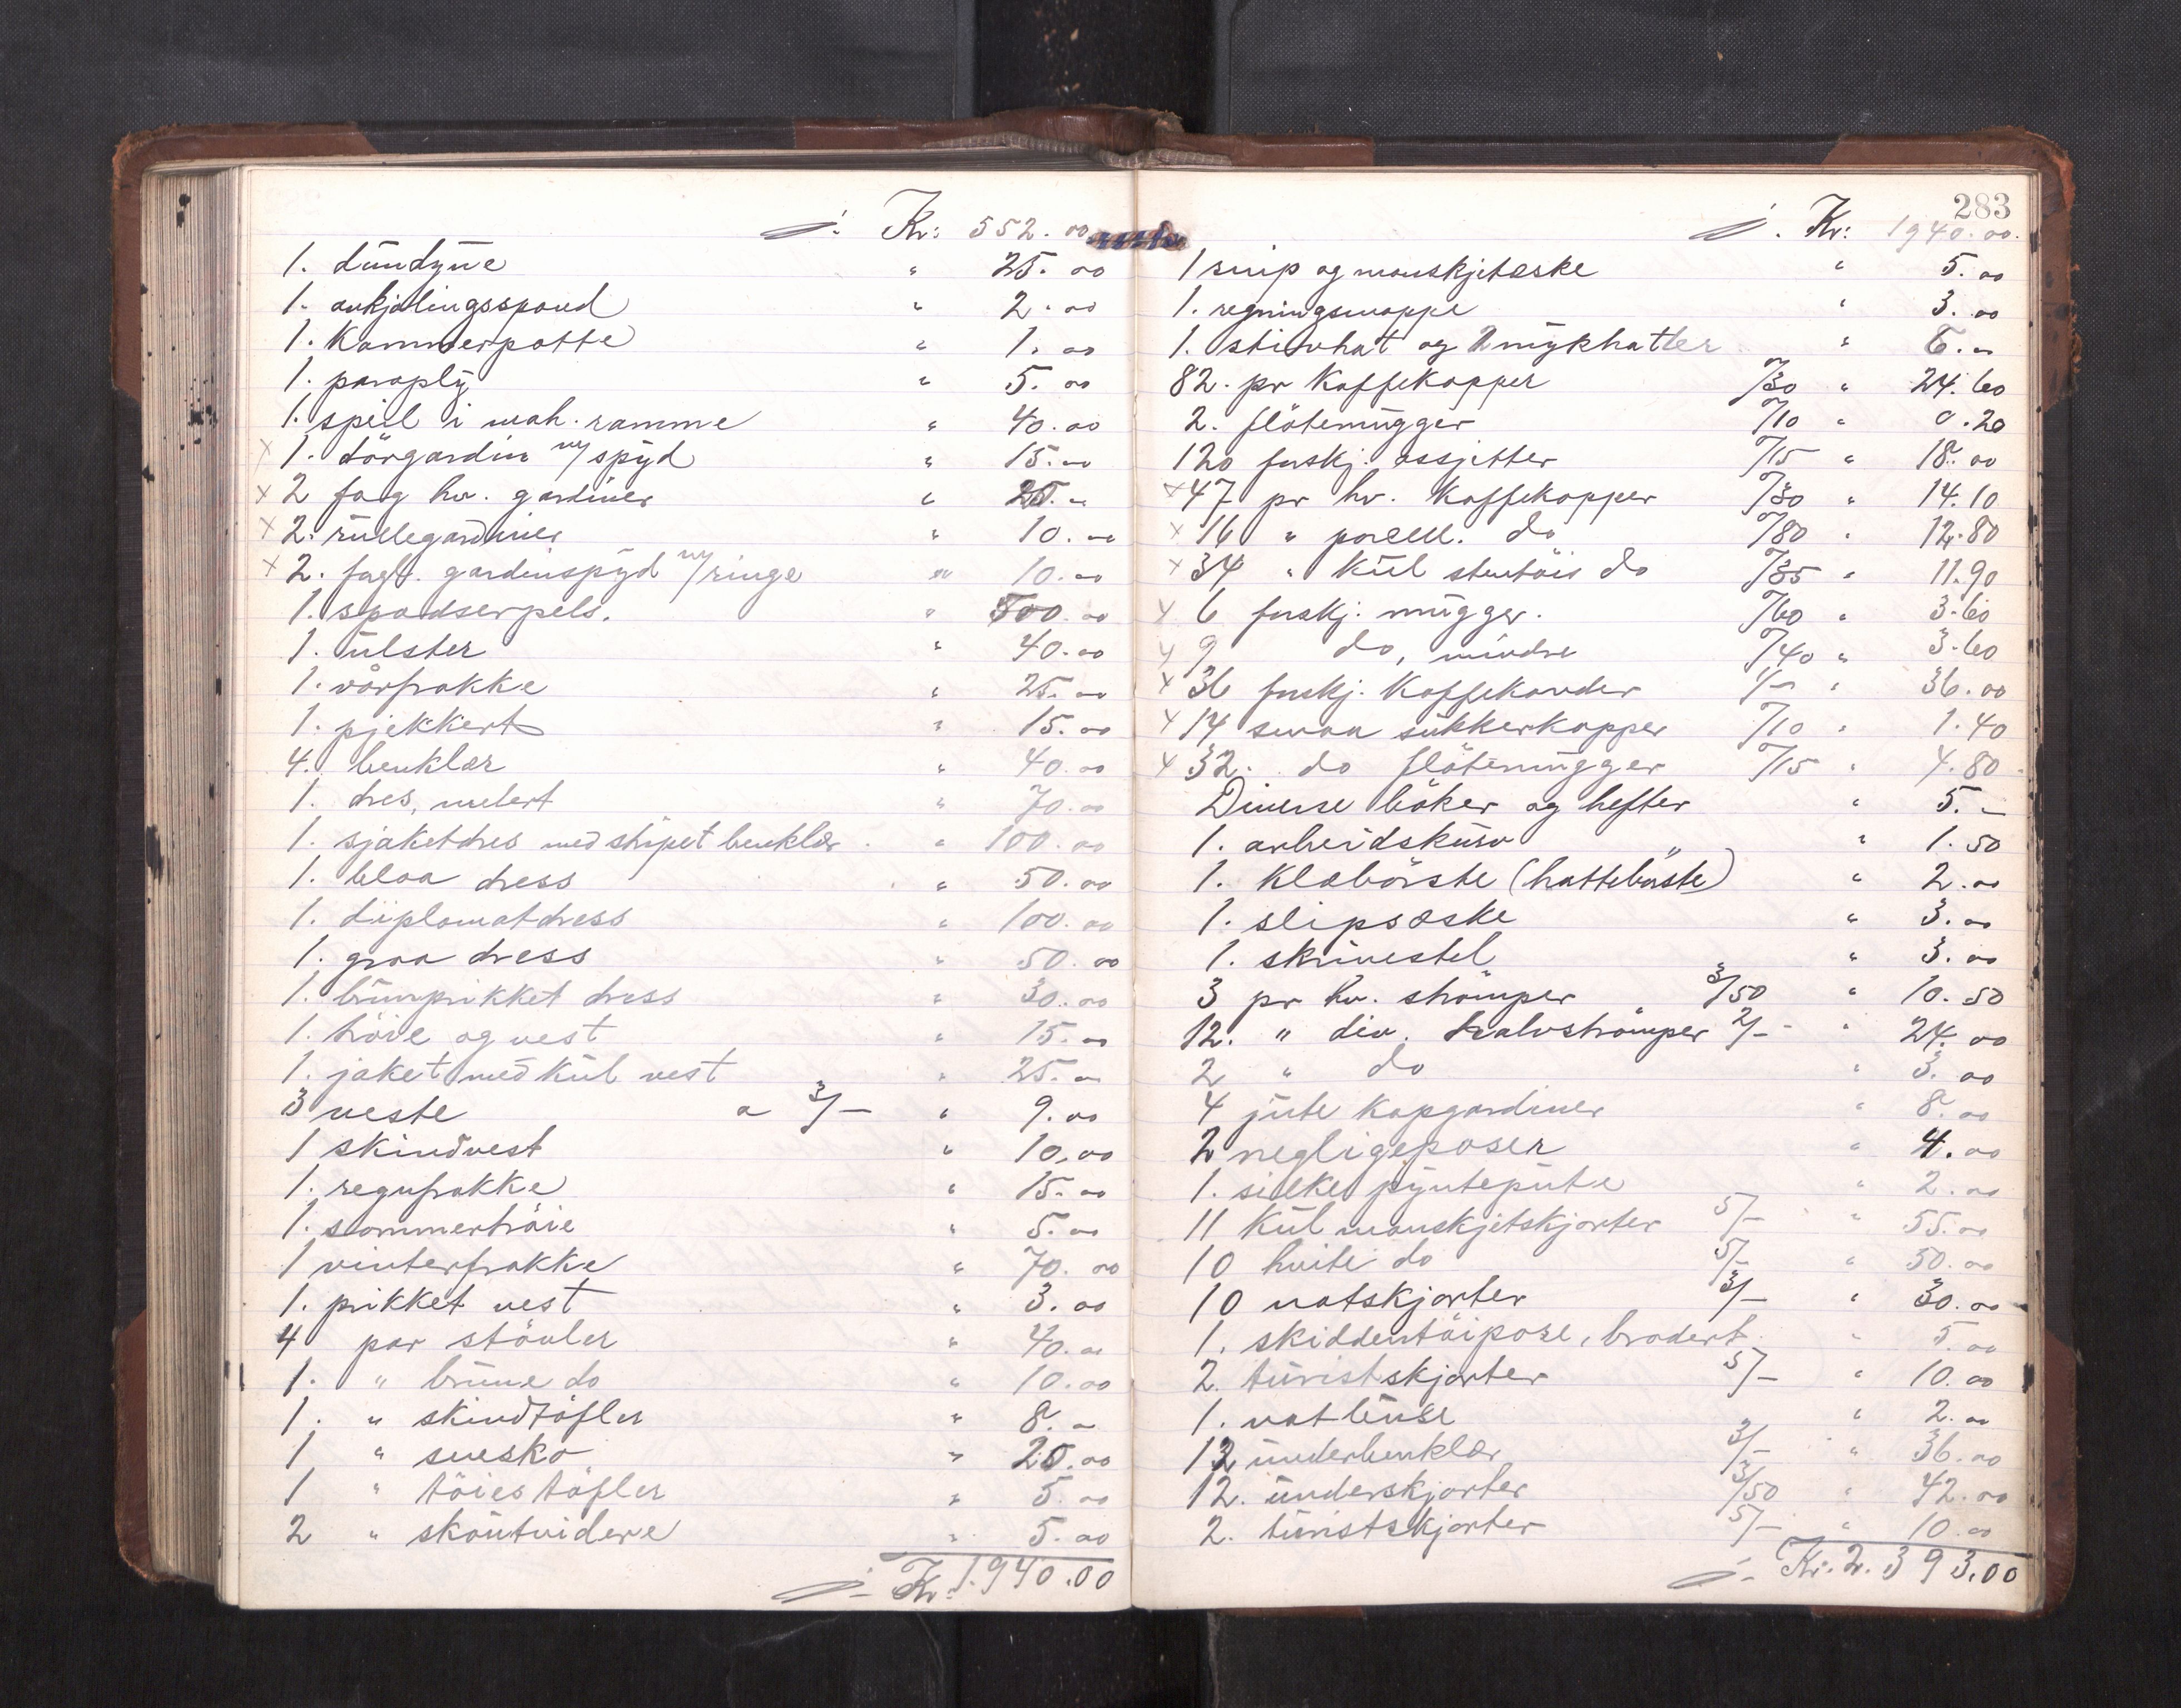 ÷ Kr: 552.00
1. dundyne " 25.00
1. avkjølingsspand " 2.00
1. Kammerpotte " 1.00
1. paraply " 5.00
1. speil i mah. ramme " 40.00
x 1. dörgardin m/spyd " 15.00
x 2 fag hv. gardiner "
x 2. rullegardiner " 10.00
x 2. fagt. gardinspyd m/ringe " 10.00
1. spadserpels. " 500.00
1. ulster " 40.00
1. vårfrakke " 25.00
1. pjekkert " 15.00
4. benklær " 40.00
1. dres, melert " 70.00
1. sjaketdres med stripet benklær " 100.00
1. blaa dress " 50.00
1. diplomatdress " 100.00
1. graa dress " 50.00
1. brunprikket dress " 30.00
1. tröie og vest " 15.00
1. jaket med kul vest " 25.00
3 veste a 3/- " 9.00
1 skindvest " 10.00
1. regnfrakke " 15.00
1. sommertröie " 5.00
1 vinterfrakke " 70.00
1. prikket vest " 3.00
4 par stövler " 40.00
1. " brune do " 10.00
1. " skindtöfler " 8.00
1 " snesko " 20.00
1 " töiestöfler " 5.00
2 " skoutvidere " 5.00
÷ Kr. 1.940.00
283
÷ Kr: 1940.00
1 snip og manskjetæske " 5.00
1. regningsmappe " 3.00
1. stivhat og 2 mykhatter " 6.00
82. pr Kaffekopper /30 " 24.60
2. flötemugger /10 " 0.20
120 forskj. assjetter /15 " 18.00
x 47 pr hv. Kaffekopper /30 " 14.10
x 16 " porcell. do /80 " 12.80
x 34 " Kul stentöis do /35 " 11.90
x 6 forskj. mugger. /60 " 3.60
x 9 do, mindre /40 " 3.60
x 36 forskj. Kaffekander 1/- " 36.00
x 14 smaa sukkerkopper /10 " 1.40
x 32. do flötemugger /15 " 4.80
Diverse böker og hefter " 5.-
1. arbeidskurv " 1.50
1. Klæbörste (hattebörste) " 2.00
1. slipsæske " 3.00
1. skrivestel " 3.00
3 pr hv. strömper 3/50 " 10.50
12. " div. halvströmper 2/- " 24.00
2 " do " 3.00
4 jute kapgardiner " 8.00
2 negligeposer " 4.00
1. silke pyntepute " 2.00
11 Kul manskjetskjorter 5/- " 55.00
10 hvite do 5/- " 50.00
10 natskjorter 3/- " 30.00
1. skiddentöipose, brodert " 5.00
2. turistskjorter 5/- " 10.00
1. natbluse " 2.00
12 underbenklær 3/- " 36.00
12. underskjorter 3/50 " 42.00
2. turistskjorter 5/- " 10.00
÷ Kr. 2.393.00